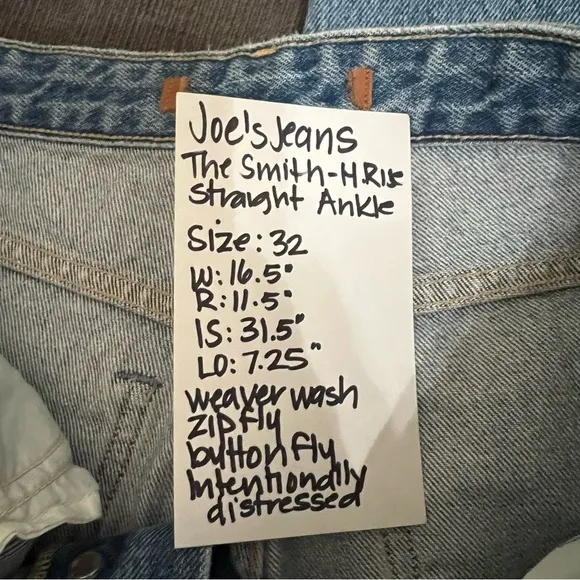 Joe's Jeans
The Smith-H.Rise
Straight Ankle
Size: 32
W: 16.5"
R: 11.5"
IS: 31.5"
LO: 7.25"
weaver wash
zip fly
button fly
Intentionally
distressed